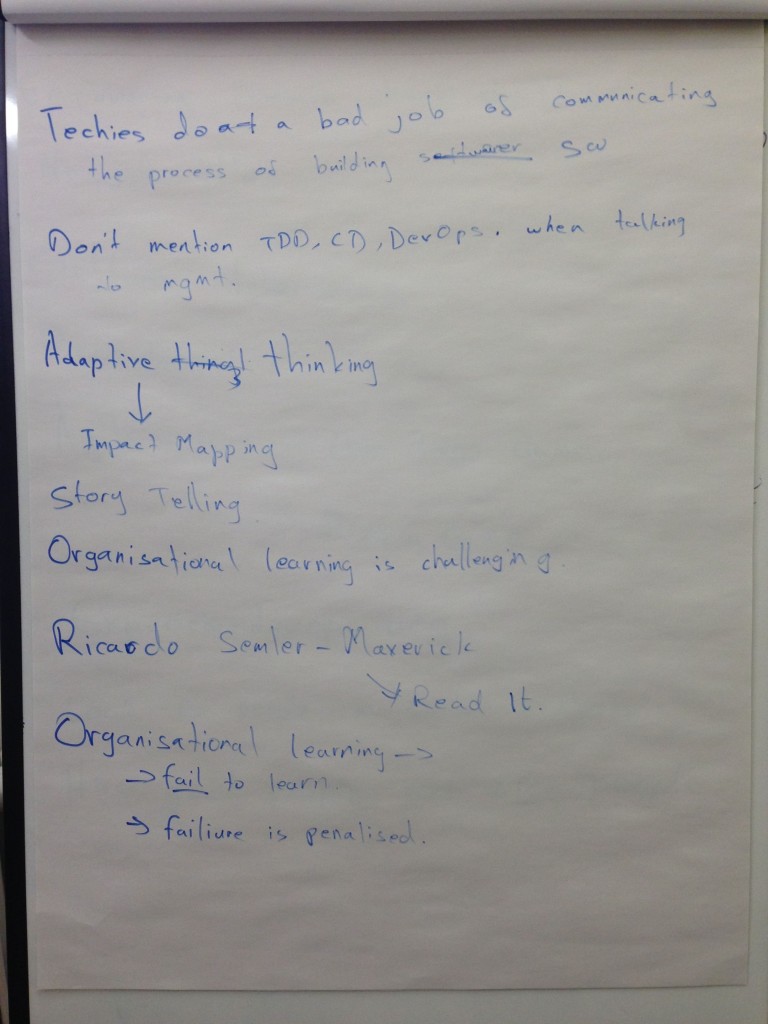 Techies do at a bad job of communicating
the process of building softwarer SW
Don't mention TDD, CD, DevOps. when talking
to mgmt.
Adaptive things thinking
↓
Impact Mapping
Story Telling
Organisational learning is challenging.
Ricardo Semler - Maverick
↘ Read It.
Organisational learning →
→ fail to learn.
→ failiure is penalised.